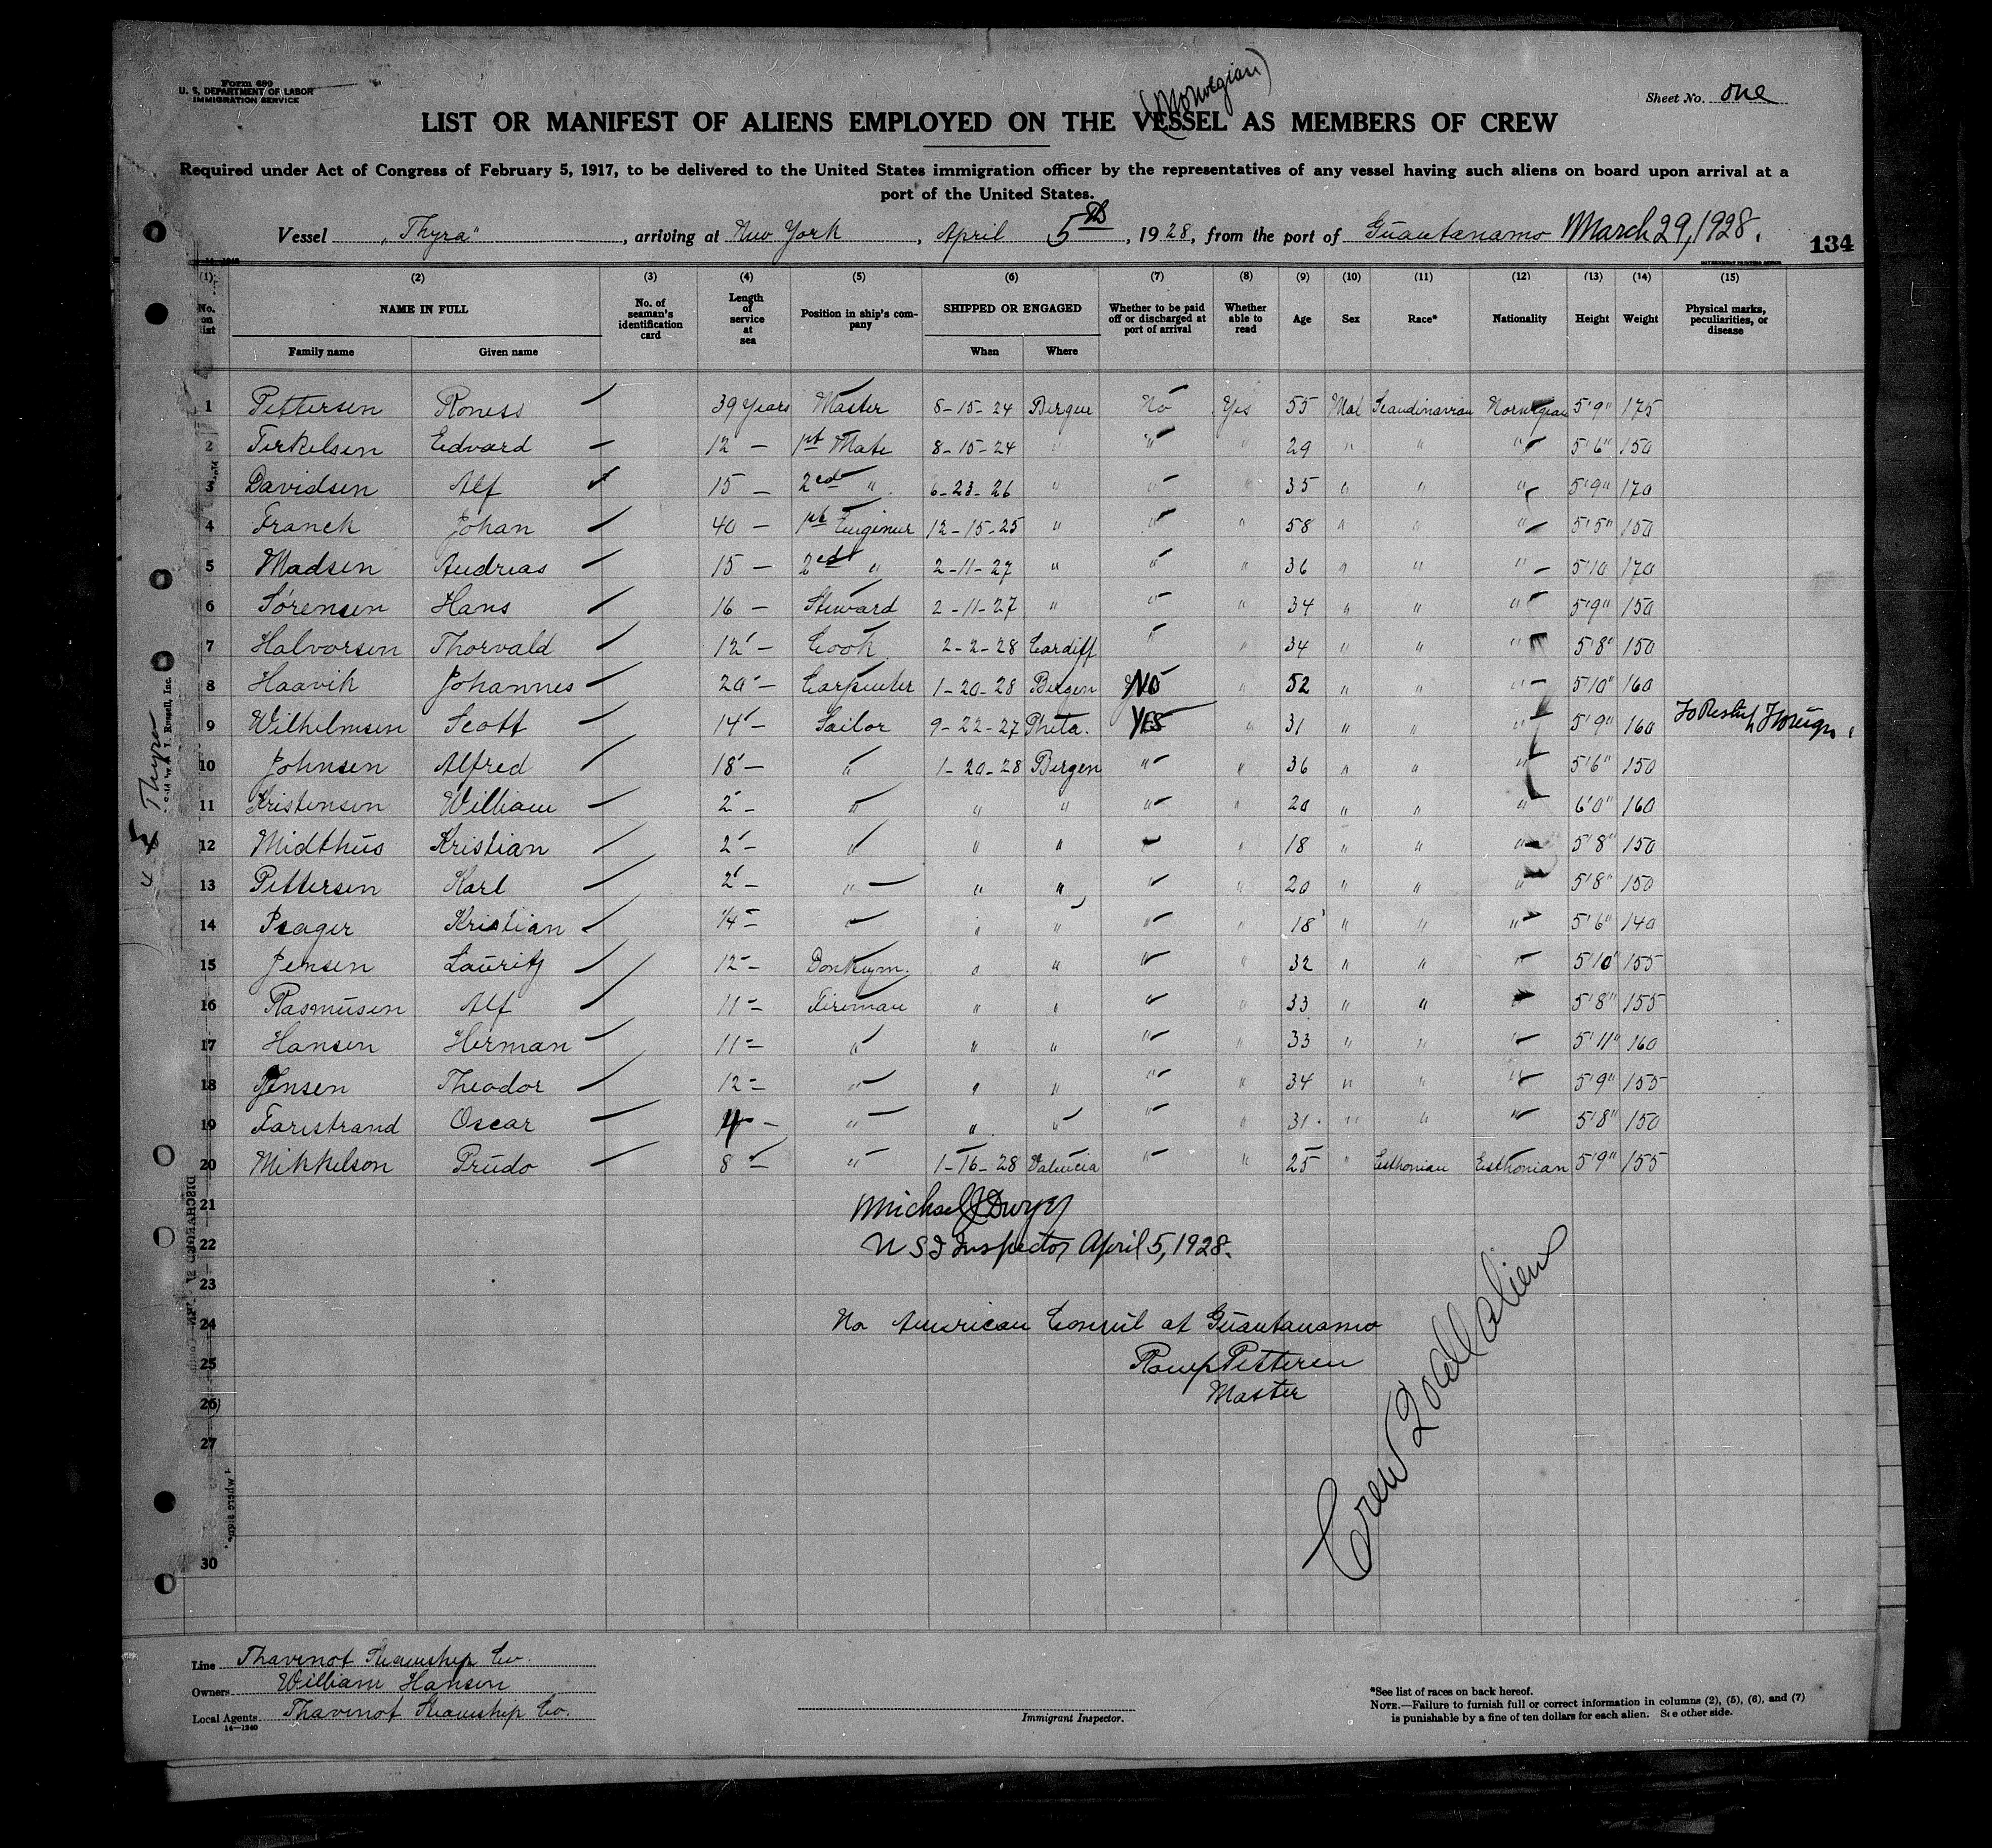 Form 689
U. S. DEPARTMENT OF LABOR
IMMIGRATION SERVICE
(Norwegian)
Sheet No. one
LIST OR MANIFEST OF ALIENS EMPLOYED ON THE VESSEL AS MEMBERS OF CREW
Required under Act of Congress of February 5, 1917, to be delivered to the United States immigration officer by the representatives of any vessel having such aliens on board upon arrival at a
port of the United States.
Vessel „Thyra", arriving at New York, April 5th, 1928, from the port of Guantanamo March 29, 1928.
134
(1) (2) (3) (4) (5) (6) (7) (8) (9) (10) (11) (12) (13) (14) (15)
No. on list NAME IN FULL No. of seaman's identification card Length of service at sea Position in ship's company SHIPPED OR ENGAGED Whether to be paid off or discharged at port of arrival Whether able to read Age Sex Race* Nationality Height Weight Physical marks, peculiarities, or disease
Family name Given name When Where
1 Pettersen Roness 39 years Master 8-15-24 Bergen No Yes 55 Mal Scandinavian Norwegian 5'9" 175
2 Terkelsen Edvard 12 — 1st Mate 8-15-24 " " " 29 " " " 5'6" 150
3 Davidsen Alf 15 — 2ed " 6-23-26 " " " 35 " " " 5'9" 170
4 Franck Johan 40 — 1st Engineer 12-15-25 " " " 58 " " " 5'5" 150
5 Madsen Andreas 15 — 2ed " 2-11-27 " " " 36 " " " 5'10 170
6 Sörensen Hans 16 — Steward 2-11-27 " " " 34 " " " 5'9" 150
7 Halvorsen Thorvald 12 — Cook 2-2-28 Cardiff " " 34 " " " 5'8" 150
8 Haavik Johannes 20 — Carpenter 1-20-28 Bergen No " 52 " " " 5'10" 160
9 Wilhelmsen Scott 14 — Sailor 9-22-27 Phila. YES " 31 " " " 5'9" 160 To Reship Foreign
10 Johnsen Alfred 18 — " 1-20-28 Bergen " " 36 " " " 5'6" 150
11 Kristensen William 2 — " " " " " 20 " " " 6'0" 160
12 Midthus Kristian 2 — " " " " " 18 " " " 5'8" 150
13 Pettersen Karl 2 — " " " " " 20 " " " 5'8" 150
14 Kristian " " " " " 18 " " " 5'6" 140
15 Jensen Lauritz 12 — Donkeym. " " " " 32 " " " 5'10" 155
16 Rasmusen Alf 11 — Fireman " " " " 33 " " " 5'8" 155
17 Hansen Herman 11 — " " " " " 33 " " " 5'11" 160
18 Jensen Theodor 12 — " " " " " 34 " " " 5'9" 155
19 Farestrand Oscar 4 — " " " " " 31 " " " 5'8" 150
20 Mikkelson Prudo 8 — " 1-16-28 Valencia " " 25 " Esthonian Esthonian 5'9" 155
21 Michael J Dwyer
22 U S I Inspector April 5, 1928.
23
24 No American Consul at Guantanamo
25 Roness Pettersen
26 Master
27
30
Crew 20 all alien
Thyra
Line Thavenot Steamship Co.
Owners William Hansen
Local Agents Thavenot Steamship Co.
14—1240
Immigrant Inspector.
*See list of races on back hereof.
NOTE.—Failure to furnish full or correct information in columns (2), (5), (6), and (7)
is punishable by a fine of ten dollars for each alien. See other side.